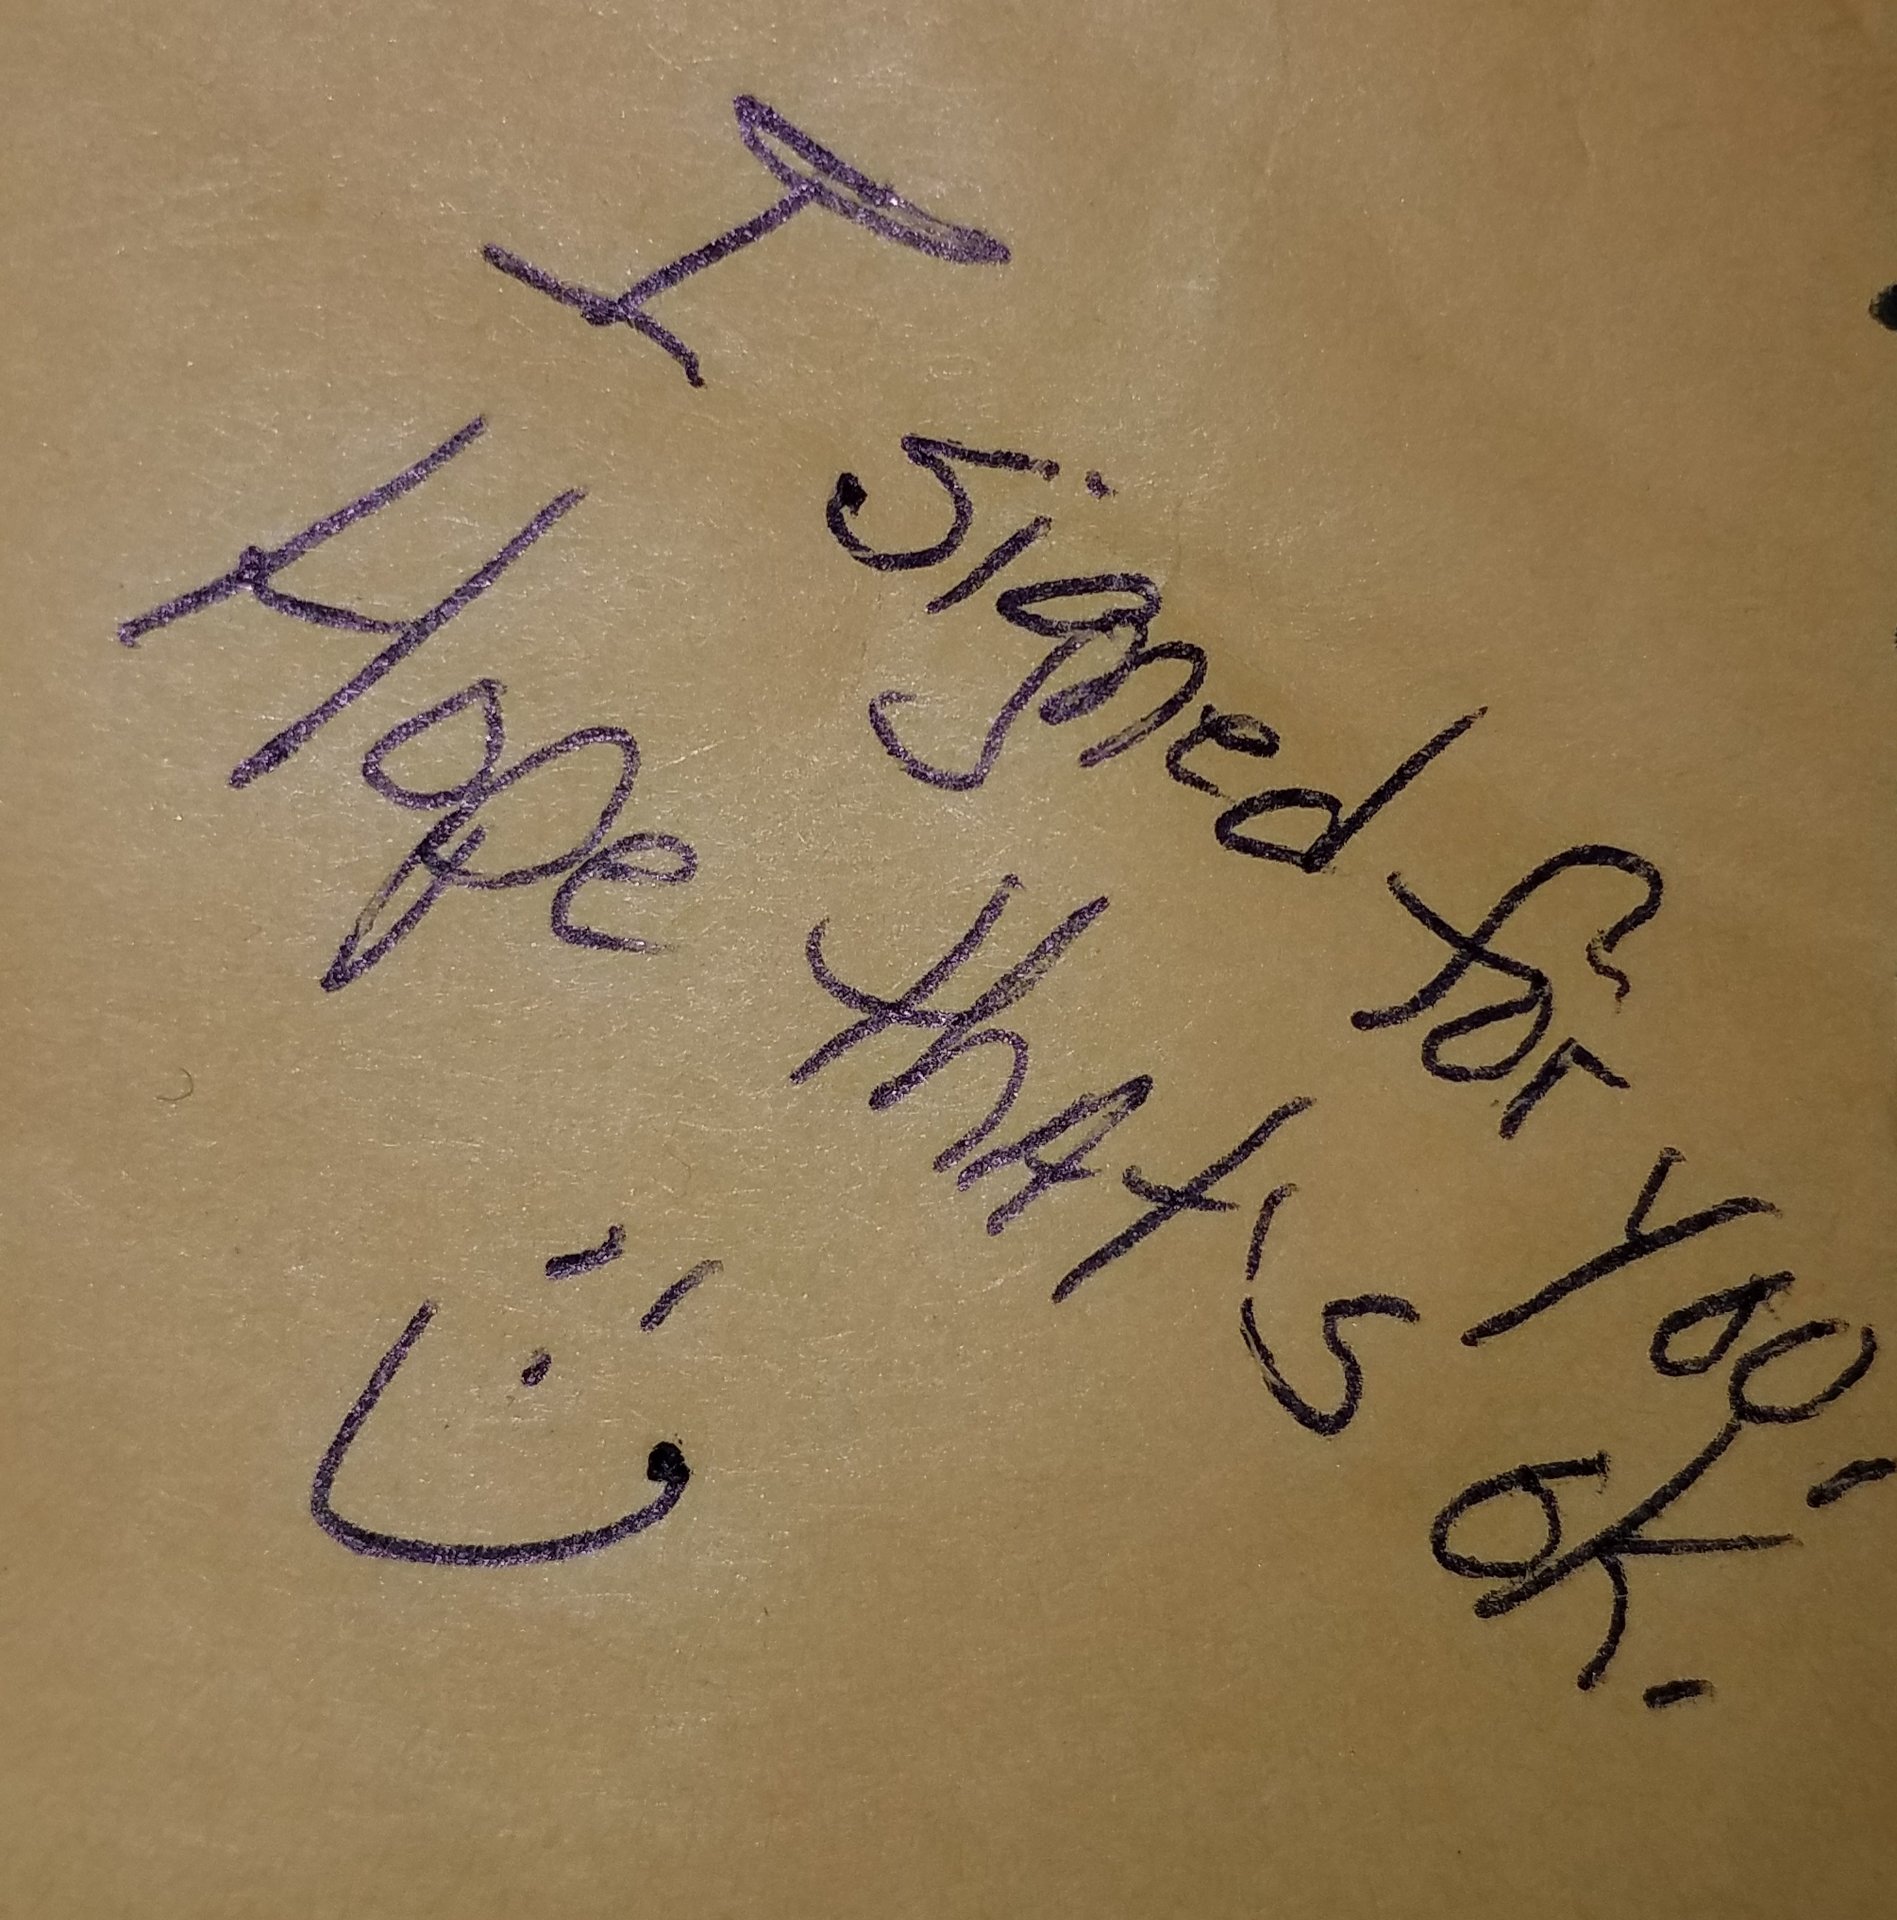 I signed for you.
Hope that's ok.